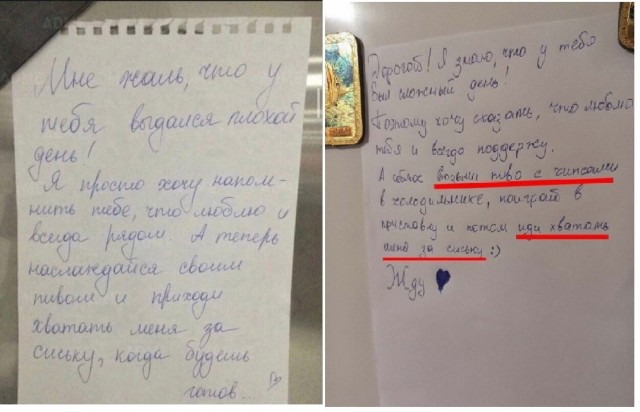 Мне жаль, что у
тебя выдался плохой
день!
Я просто хочу напом-
нить тебе, что люблю и
всегда рядом. А теперь
наслаждайся своим
пивом и приходи
хватать меня за
сиську, когда будешь
готов...
Дорогой! Я знаю, что у тебя
был сложный день!
Поэтому хочу сказать, что люблю
тебя и всегда поддержу.
А сейчас возьми пиво с чипсами
в холодильнике, поиграй в
приставку и потом иди хватать
меня за сиську :)
Жду